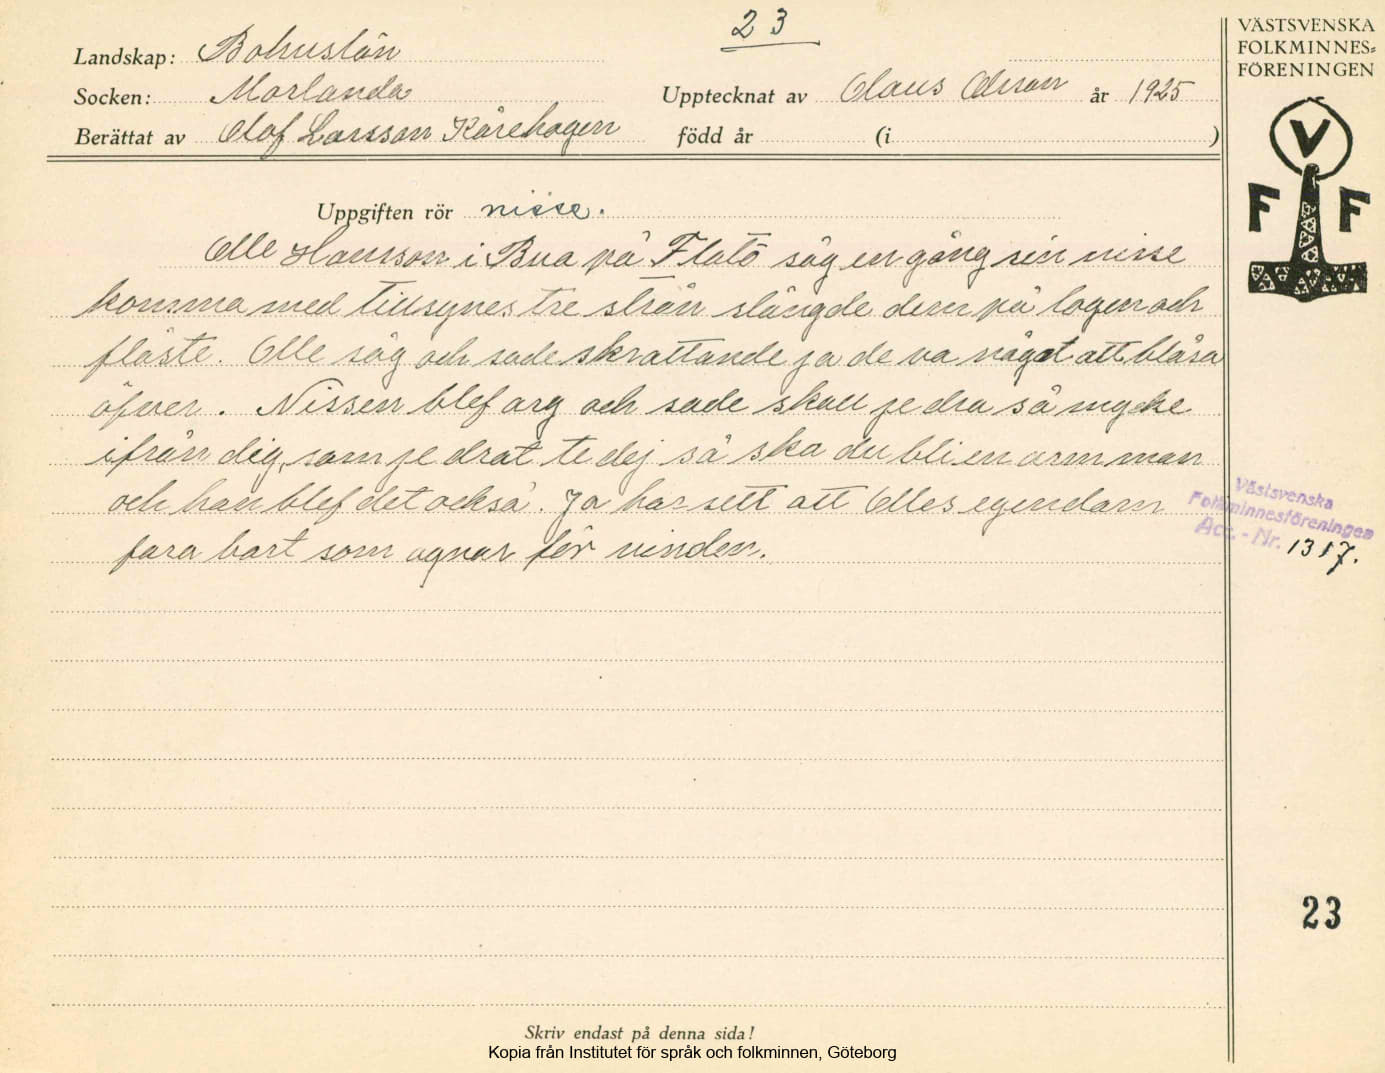 23
VÄSTSVENSKA
FOLKMINNES=
FÖRENINGEN
Landskap: Bohuslän
Socken: Morlanda
Upptecknat av Claus år 1925
Berättat av Olof Larsson Kårehogen
född år (i )
V
F F
Uppgiften rör nisse.
Olle Hansson i Bua på Flatö såg en gång sin nisse
komma med tillsynes tre strån slängde dem på logen och
flåste. Olle såg och sade skrattande ja de va något att blåsa
öfver. Nissen blef arg och sade skall je dra så mycke
ifrån dig, som je drat te dej så ska du bli en arm man
och han blef det också. Ja har sett att Olles egendom
fara bort som agnar för vinden.
Västsvenska
Folkminnesföreningen
Acc. - Nr. 1317.
23
Skriv endast på denna sida!
Kopia från Institutet för språk och folkminnen, Göteborg